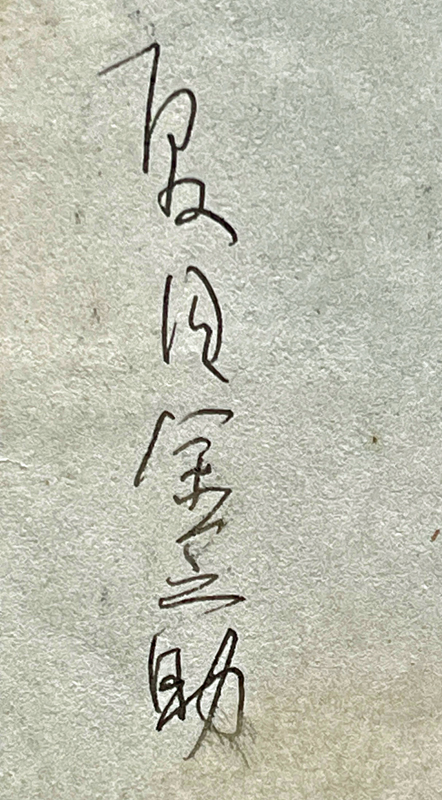 夏目金之助